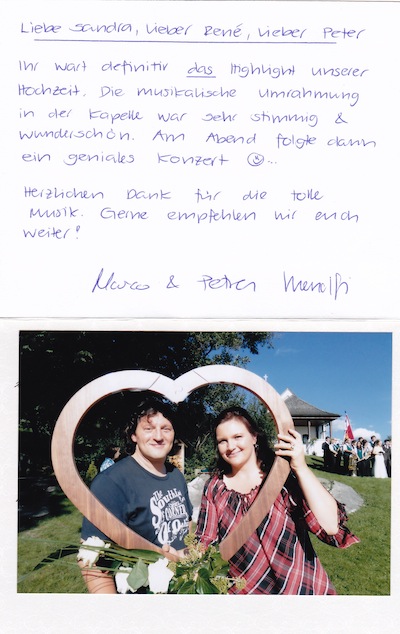 Liebe Sandra, lieber René, lieber Peter
Ihr wart definitiv das Highlight unserer
Hochzeit. Die musikalische Umrahmung
in der Kapelle war sehr stimmig &
wunderschön. Am Abend folgte dann
ein geniales Konzert ☺...
Herzlichen Dank für die tolle
Musik. Gerne empfehlen wir euch
weiter!
Marco & Petra
The South